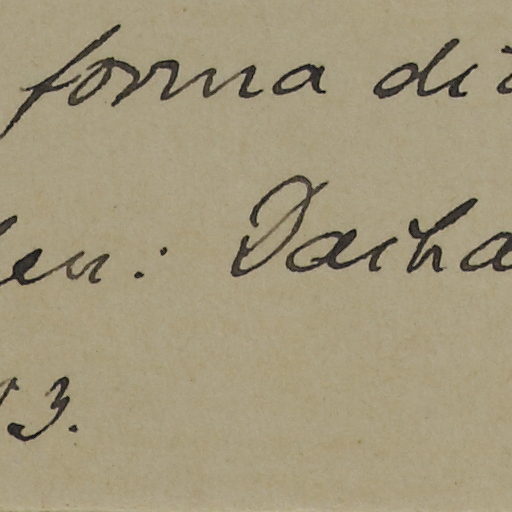 forma di
en: Dacha
3.